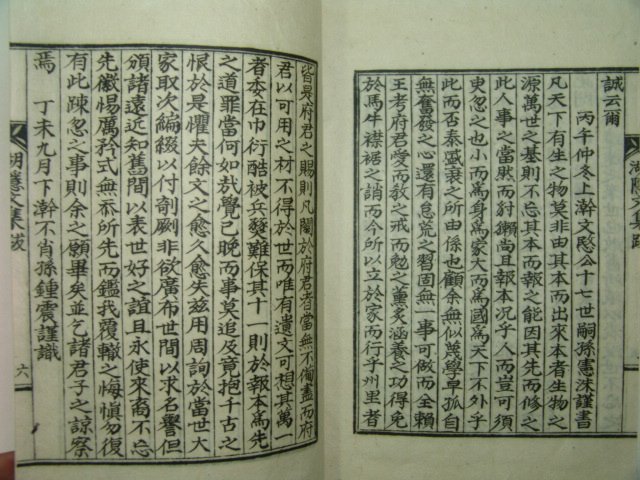 誠云爾
丙午仲冬上澣文愍公十七世嗣孫憲洙謹書
凡天下有生之物莫非由其本而出來本者生物之
源萬世之基則不忘其本而報之能因其先而修之
此人事之當然而豺獺尚且報本況乎人而豈可須
臾忽之也小而爲身爲家大而爲國爲天下不外乎
此而否泰盛衰之所由係也顧余無似蔑學早孤自
無奮發之心還有怠荒之習固無一事可做而全賴
王考府君愛而敎之戒而勉之薰炙涵養之功得免
於馬牛襟裾之誚而今以後立於家而行乎州里者
皆是府君之賜則凡關於府君者當無不備盡而府
君以可用之材不得於世而唯有遺文可想其萬一
者
在巾衍酷被兵發難保其十一則於報本爲先
之道罪當何如哉覺已晩而事莫追及竟抱千古之
恨於是懼夫餘文之愈久愈失玆用周詢於當世大
家取次編綴以付剞劂非欲廣布世間以求名譽但
頒諸遠近知舊間以表世好之誼且永使來裔不忘
先徽惕厲矜式無忝所先而鑑我覆轍之悔愼勿復
有此踈忽之事則余之願畢矣並乞諸君子之諒察
焉
丁未九月下澣不肖孫鍾震謹識
湖隱文集跋
六